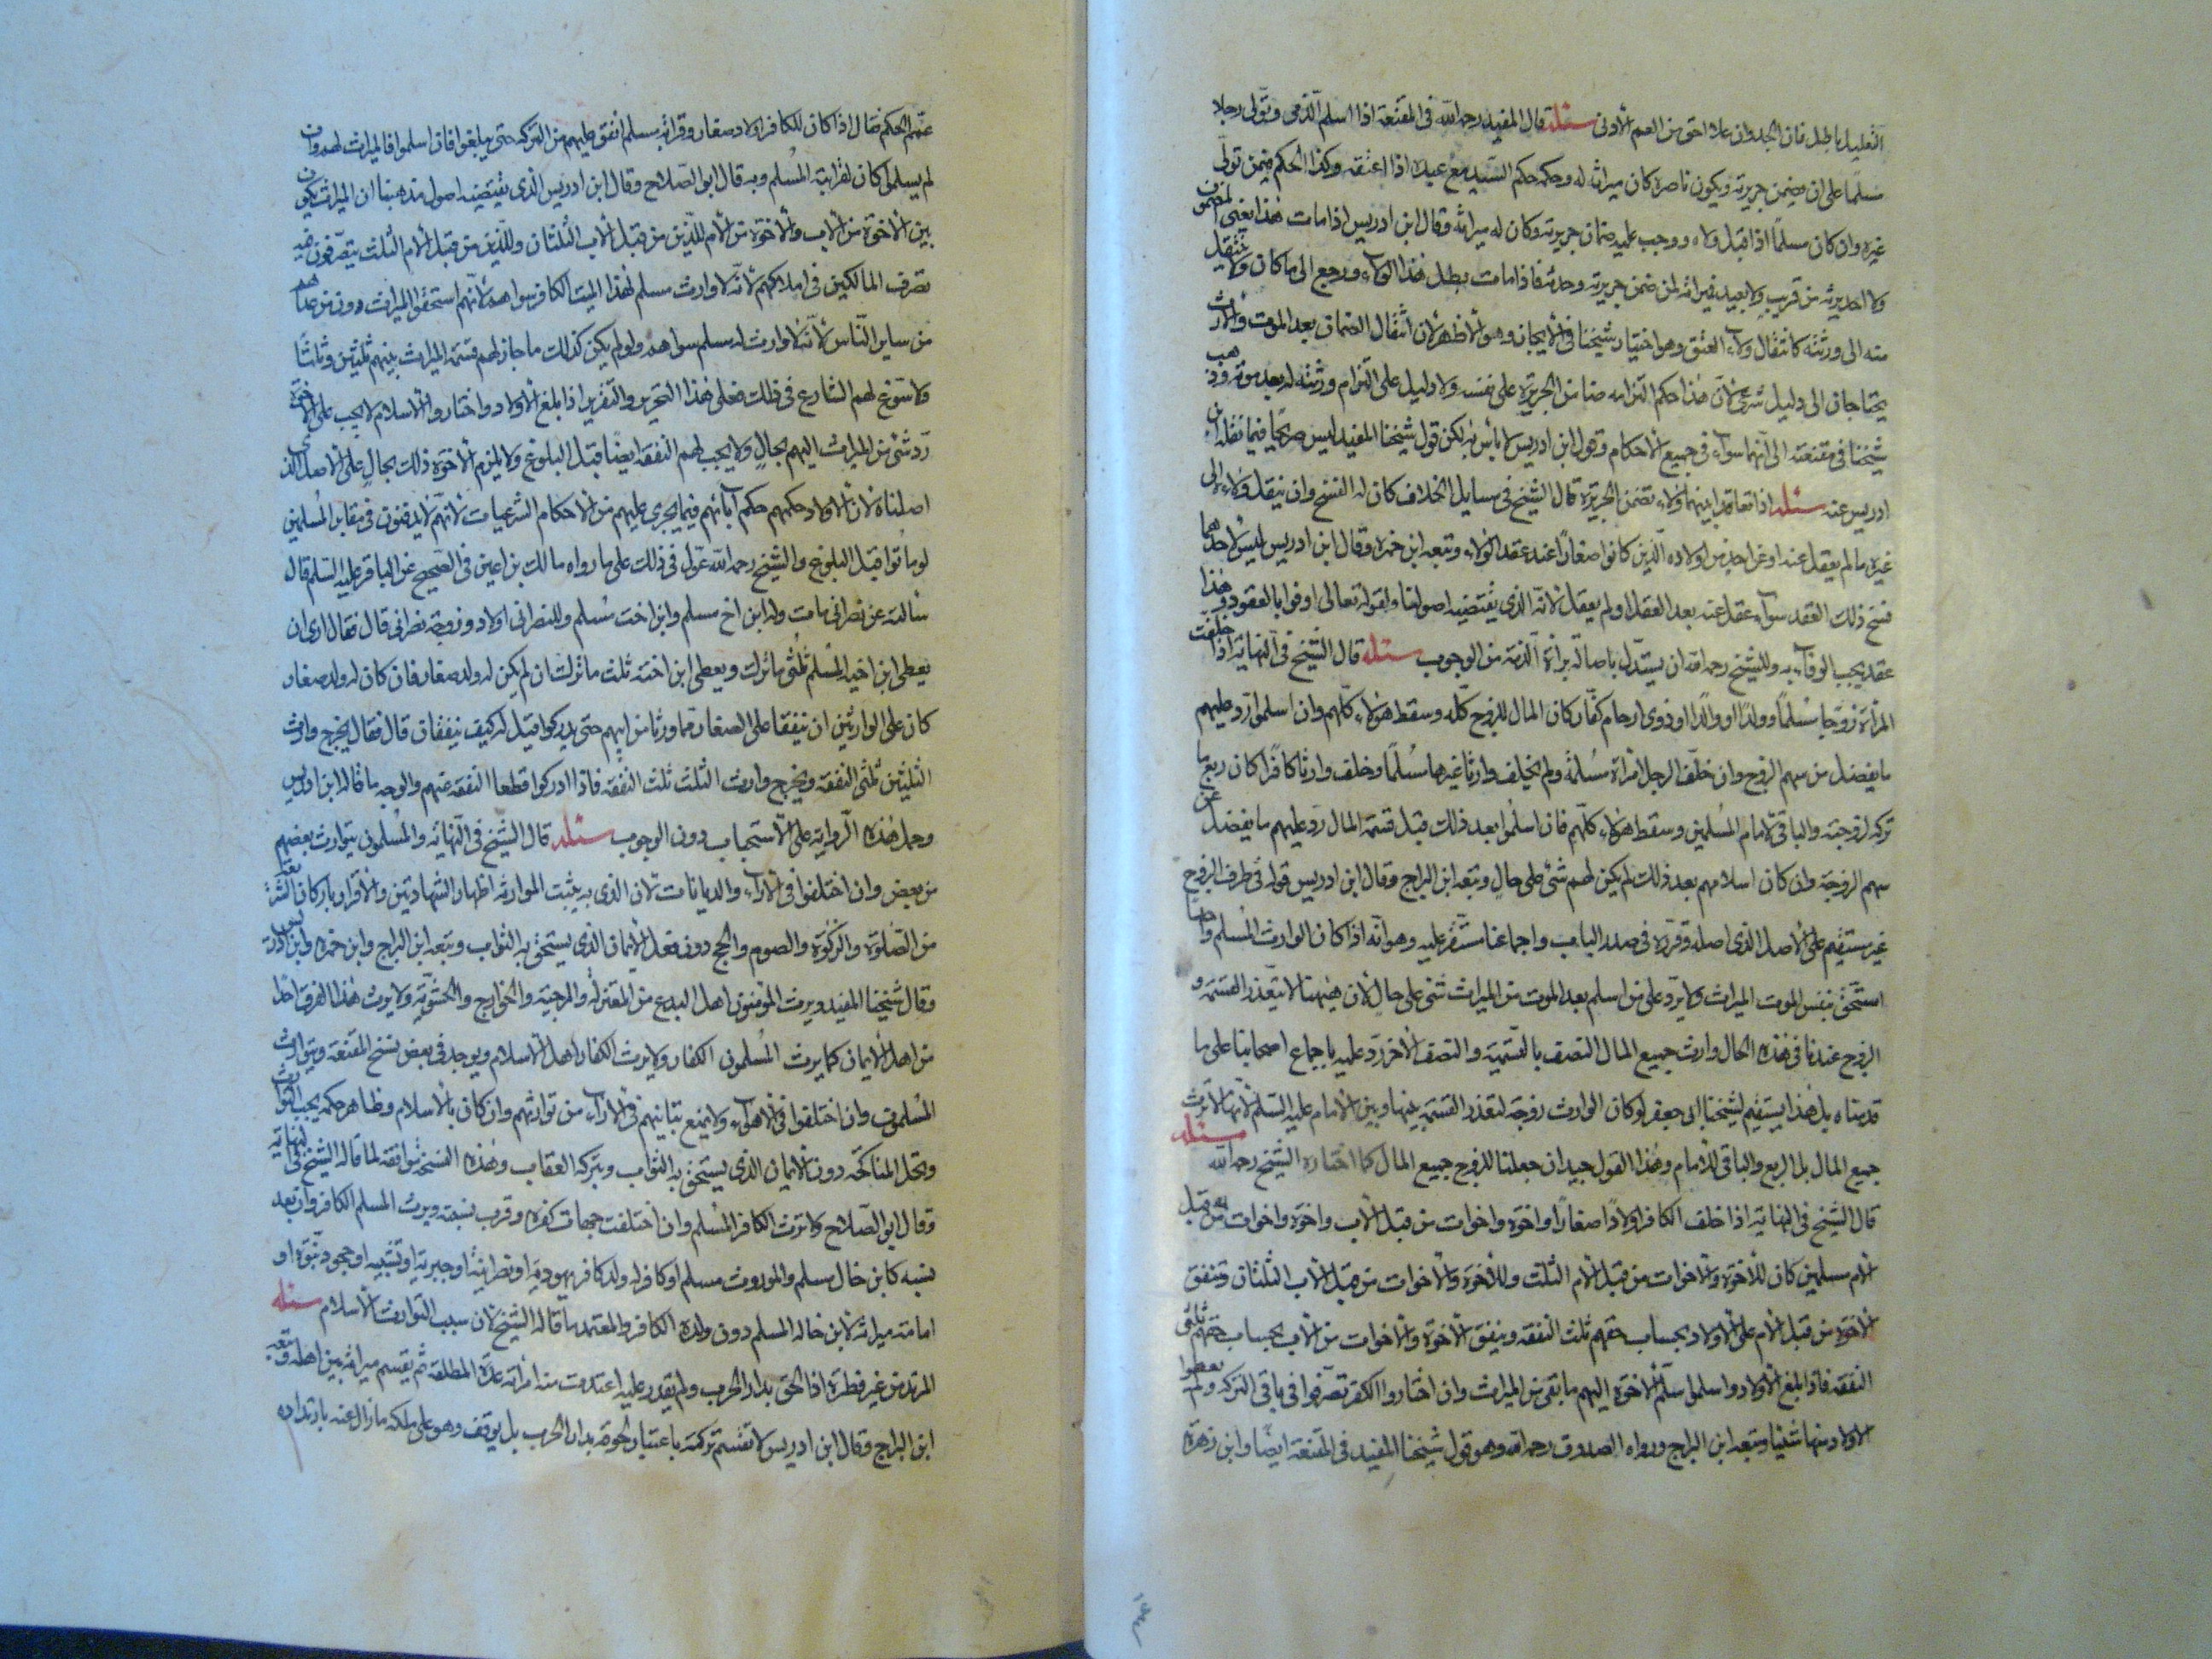 التعليل باطل فان الجد وان علا احق من العم الأدنى مسئلة قال المفيد رحمه الله فى المقنعة اذا اسلم الذمى وتولى رجلا
مسلما على ان يضمن جريرته ويكون ناصره كان ميراثه له وحكمه حكم السيد مع عبده اذا اعتقه وكذا الحكم فيمن تولى
غيره وان كان مسلما اذا قبل ولاه ووجب عليه ضمان جريرته وكان له ميراثه وقال ابن ادريس اذا مات هذا يعنى المضمون
ولا احد يرثه من قريب ولا بعيد فميراثه لمن ضمن جريرته وحدثه فاذا مات بطل هذا الولاء ورجع الى ما كان ولا ينتقل
منه الى ورثته كانتقال ولاء العتق وهو اختيار شيخنا فى الايجاز وهو الأظهر لأن انتقال الضمان بعد الموت والارث
يحتاجان الى دليل شرعى لأن هذا حكم التزامه ضامن الجريرة على نفسه ولا دليل على التزام ورثته له بعد موته وذهب
شيخنا فى مقنعته الى انهما سواء فى جميع الأحكام وقول ابن ادريس لا بأس به لكن قول شيخنا المفيد ليس صريحا فيما نقله ابن
ادريس عنه مسئلة اذا تعاقدا بينهما ولاء تضمن الجريرة قال الشيخ فى مسايل الخلاف كان له الفسخ وان ينقل ولاءه الى
غيره ما لم يعقل عنه او عن احد من اولاده الذين كانوا صغارا عند عقد الولاء وتبعه ابن حمزه وقال ابن ادريس ليس لأحدهما
فسخ ذلك العقد سواء عقل عنه بعد العقد او لم يعقل لأنه الذى يقتضيه اصولنا ولقوله تعالى اوفوا بالعقود وهذا
عقد يجب الوفاء به وللشيخ رحمه الله ان يستدل باصالة براة الذمة من الوجوب مسئلة قال الشيخ فى النهاية اذا خلفت
المرأة زوجا مسلما وولدا او والدا او ذوى ارحام كفار كان المال للزوج كله وسقط هؤلاء كلهم وان اسلموا رد عليهم
ما يفضل من سهم الزوج وان خلف الرجل امرأة مسلمة ولم يخلف وارثا غيرها مسلما وخلف وارثا كافرا كان ربع ما
تركه لزوجته والباقى لأمام المسلمين وسقط هؤلاء كلهم فان اسلموا بعد ذلك قبل قسمة المال رد عليهم ما يفضل عن
سهم الزوجة وان كان اسلامهم بعد ذلك لم يكن لهم شئ على حال وتبعه ابن البراج وقال ابن ادريس قوله فى طرف الزوج
غير مستقيم على الأصل الذى اصله وقرره فى صدر الباب واجماعنا مستقر عليه وهو انه اذا كان الوارث المسلم واحدا
استحق بنفس الموت الميراث ولا يرد على من اسلم بعد الموت من الميراث شئ على حال لأن هيهنا لا يتقدر القسمة و
الزوج عندنا فى هذه الحال وارث جميع المال النصف بالتسمية والنصف الآخر رد عليه باجماع اصحابنا على ما
قدمناه بل هذا يستقيم لشيخنا ابى جعفر لو كان الوارث زوجة لتقدر القسمة بينها وبين الامام عليه السلم لأنها لا ترث
جميع المال بل الربع والباقى للأمام وهذا القول جيد ان جعلنا للزوج جميع المال كما اختاره الشيخ رحمه الله مسئلة
قال الشيخ فى النهاية اذا خلف الكافر اولادا صغارا واخوة واخوات من قبل الأب واخوة واخوات من قبل
الأم مسلمين كان للأخوة والأخوات من قبل الأم الثلث وللأخوة والأخوات من قبل الأب الثلثان وينفق
الأخوة من قبل الأم على الأولاد بحساب حقهم ثلث النفقه وينفق الأخوة والأخوات من الأب بحساب حقهم ثلثى
النفقه فاذا بلغ الأولاد واسلموا سلم الأخوة اليهم ما بقى من الميراث وان اختاروا الكفر تصرفوا فى باقى التركه ولم يعطوا
الاولاد منها شيئا وتبعه ابن البراج ورواه الصدوق رحمه الله وهو قول شيخنا المفيد فى المقنعة ايضا وابن زهره
عمم الحكم فقال اذا كان للكافر اولاد صغار وقرابه مسلم انفق عليهم من التركه حتى يبلغوا فان اسلموا فالميراث لهم وان
لم يسلموا كان لقرابته المسلم وبه قال ابو الصلاح وقال ابن ادريس الذى يقتضيه اصول مذهبنا ان الميراث يكون
بين الأخوة من الأب والأخوة من الأم للذين من قبل الأب الثلثان وللذين من قبل الأم الثلث يتصرفون فيه
تصرف المالكين فى املاكهم لأنه لا وارث مسلم لهذا الميت الكافر سواهم لأنهم استحقوا الميراث دون من عداهم
من ساير الناس لأنه لا وارث له مسلم سواهم ولو لم يكن كذلك ما جاز لهم قسمة الميراث بينهم ثلثين وثلثا
ولا سوغ لهم الشارع فى ذلك فعلى هذا التحرير والتقرير اذا بلغ الأولاد واختاروا الأسلام لا يجب على الأخوة
رد شئ من الميراث اليهم بحال ولا يجب لهم النفقه ايضا قبل البلوغ ولا يلزم الأخوة ذلك بحال على الأصل الذى
اصلناه لأن الأولاد حكمهم حكم آبائهم فيما يجرى عليهم من الأحكام الشرعيات لأنهم لا يدفنون فى مقابر المسلمين
لو ماتوا قبل البلوغ والشيخ رحمه الله عول فى ذلك على ما رواه مالك بن اعين فى الصحيح عن الباقر عليه السلم قال
سألته عن نصرانى مات وله ابن اخ مسلم وابن اخت مسلم وللنصرانى اولاد وزوجة نصرانى قال فقال ارى ان
يعطى ابن اخيه المسلم ثلثى ما ترك ويعطى ابن اخته ثلث ما ترك ان لم يكن له ولد صغار فان كان له ولد صغار
كان على الوارثين ان ينفقا على الصغار مما ورثا من ابيهم حتى يدركوا قيل له كيف ينفقان قال فقال يخرج وارث
الثلثين ثلثى النفقه ويخرج وارث الثلث ثلث النفقه فاذا ادركوا قطعا النفقه عنهم والوجه ما قاله ابن ادريس
وحمل هذه الروايه على الأستحباب دون الوجوب مسئله قال الشيخ فى النهايه والمسلمون يتوارث بعضهم
من بعض وان اختلفوا فى الآراء والديانات لأن الذى به يثبت الموارثه اظهار الشهادتين والأقرار باركان الشريعة
من الصلوة والزكوة والصوم والحج دون فعل الأيمان الذى يستحق به الثواب وتبعه ابن البراج وابن حمزه وابن ادريس
وقال شيخنا المفيد ويرث المؤمنون اهل البدع من المعتزله والمرجئه والخوارج والحشويه ولا يرث هذا الفرق احدا
من اهل الأيمان كما يرث المسلمون الكفار ولا يرث الكفار اهل الأسلام ويوجد فى بعض نسخ المقنعة ويتوارث
المسلمون وان اختلفوا فى الأهواء ولا يمنع تباينهم فى الآراء من توارثهم وان كان بالأسلام وظاهر حكمه يجب التوارث
وتحل المناكحه دون الأيمان الذى يستحق به الثواب وبتركه العقاب وهذه النسخه موافقه لما قاله الشيخ فى نهايته
وقال ابو الصلاح ولا ترث الكافر المسلم وان اختلفت جهات كفره وقرب نسبته ويرث المسلم الكافر وان بعد
نسبه كابن خال مسلم والموروث مسلم او كافر له ولد كافر بيهوديه او نصرانيه او جبريه او تشبيه او جحود نبوه او
امامته ميراثه لأبن خاله المسلم دون ولده الكافر والمعتمد ما قاله الشيخ لأن سبب التوارث الأسلام مسئله
المرتد من غير فطرة اذا لحق بدار الحرب ولم يقدر عليه اعتدت منه امرأته عدة المطلقه ثم يقسم ميراثه بين اهله وتبعه
ابن البراج وقال ابن ادريس لا تقسم تركته باعتبار لحوقه بدار الحرب بل يوقف وهو على ملكه ما زال عنه بارتداده